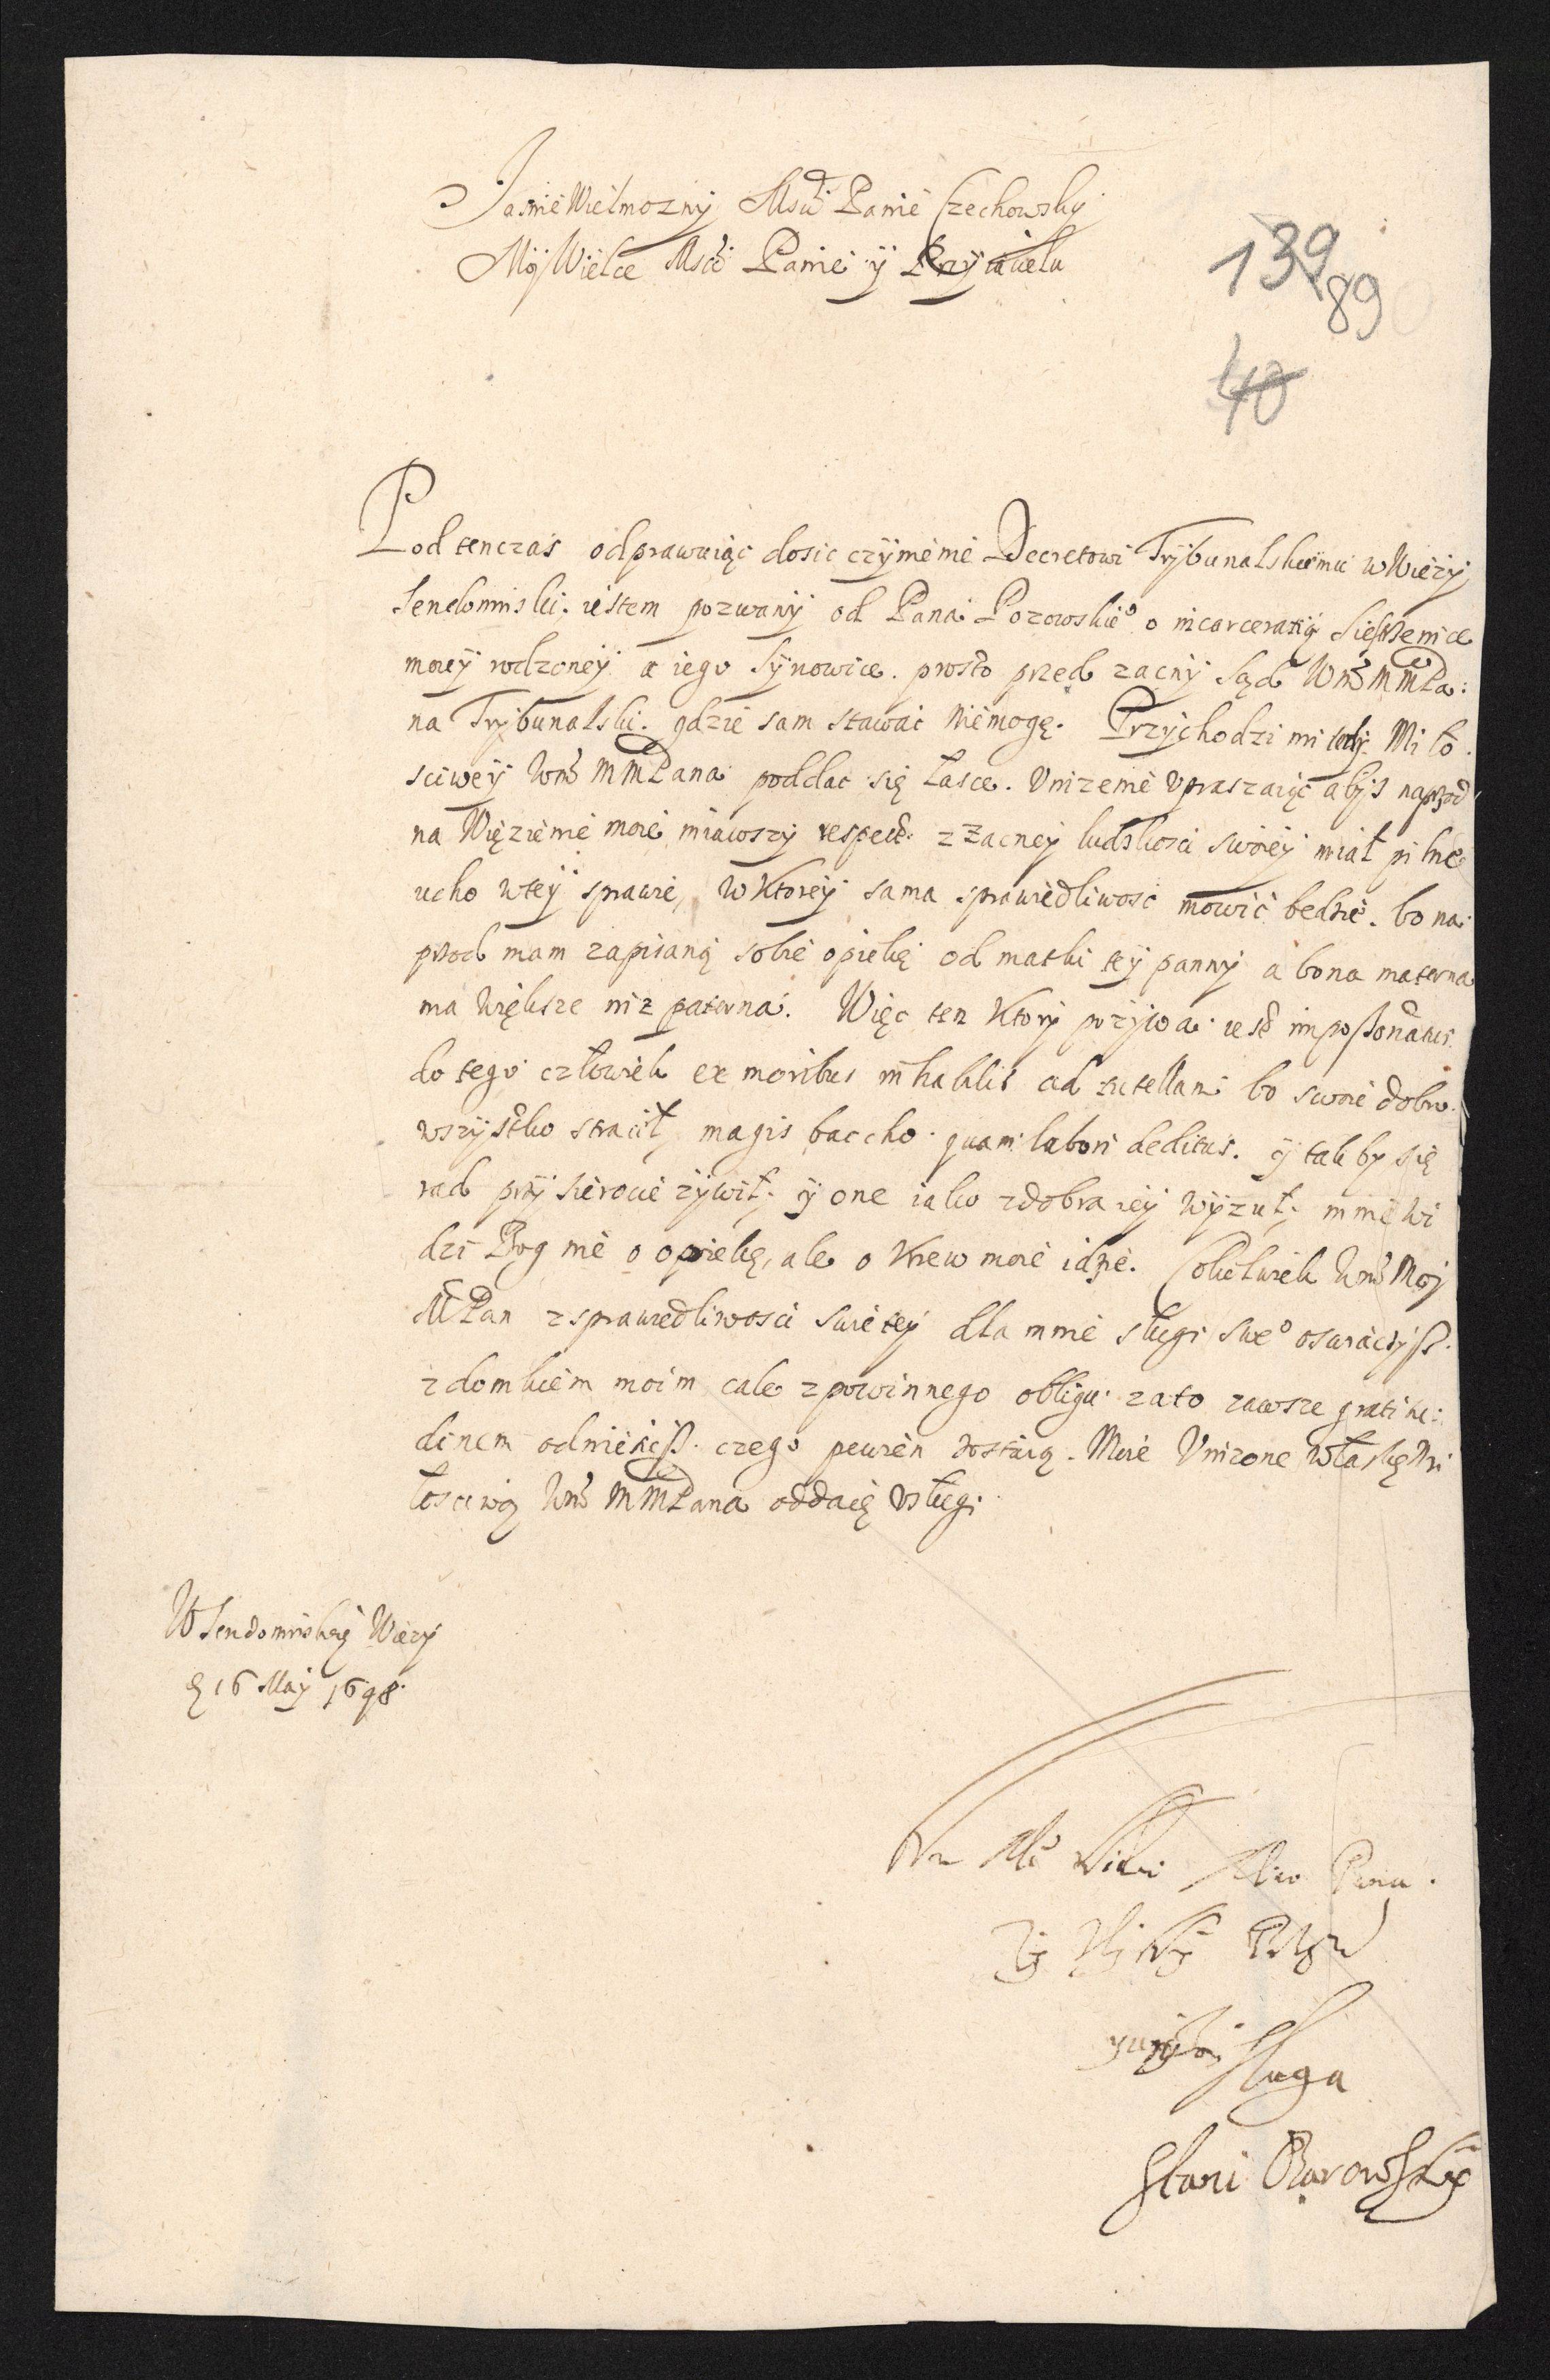 JasnieWielmozny Msci Panie Czechowsky
Moj Wielce Msci Panie y Przyiacielu
139
89
40
Pod tenczas odprawuiąc dosic czynienie Decretowi Trybunalskiemu w Wiezy
Sendomirski. iestem pozwany od Pana Pozowskie° o incarceratią Siestrzenice
moiey rodzoney a iego Synowice. prosto przed zacny Sąd Wm̃ MMPa:
na Trybunalski. gdzie sam stawac niemogę. Przychodzi mi tedy Miło
sciwey Wm̃ MMPana poddac się łasce. Unizenie upraszaiąc abys naprzod
na Więzienie moie miawszy respect. z zacney ludzkosci swoiey miał pilne
ucho w tey sprawie, w Ktorey sama sprawiedliwosc mowic bedzie. bo na
przod mam zapisaną sobie opiekę od matki tey panny a bona materna
ma większe niz paterna. Więc ten Ktory pozywa iest impossionatus
do tego człowiek ex moribus inhabilis ad tutellam bo swoie dobro
wszystko stracił, magis baccho quam labori deditus. y tak by się
rad przy sierocie zywił, y one iako z dobra iey wyzuł, mnie wi
dzi Bog nie o opiekę, ale o Krew moie idzie. Cokolwiek Wm̃ Moj
MPan z sprawiedliwosci swietey dla mnie sługi swe° oswiaczysz
z domkiem moim cale z powinnego obligu zato zawsze gratitu:
dinem odniesiesz. czego pewien zostaię. Moie Unizone w łaskę Mi
łosciwą Wm̃ MMPana oddaię usługi
W Sendomirskiey Wiezy
16 May 1698
Pana
sluga